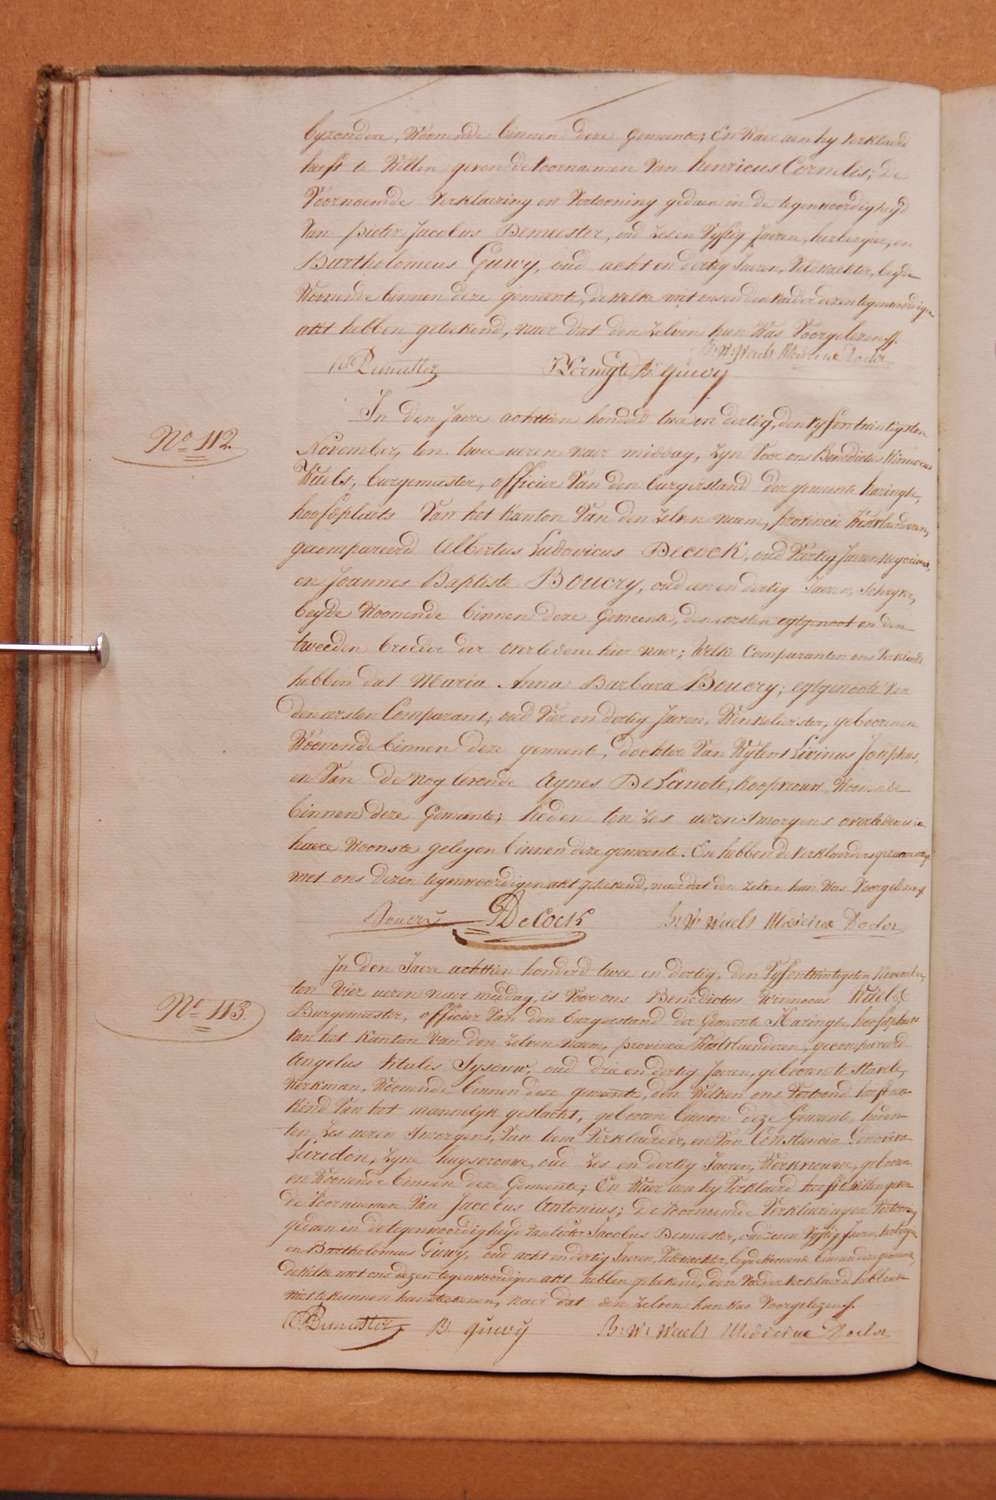 byzondere, Woonende binnen deze gemeente; En Waer aen hy verklaerd
heeft te Willen geven de Voornaemen Van henricus Cornelis; de
Voornoemde Verklaering en Vertooning gedaen in de tegenwoordigheyd
Van pieter Jacobus Demeester, oud zes en Vyftig Jaeren, herbergier, en
Bartholomeus Guwy, oud acht en dertig Jaeren, Veldwachter, beyde
Woonende binnen deze gemeente, dewelke met ons en den vader dezen tegenwoordigen
akt hebben geteekend, naer dat den zelven hun Was Voorgelezen.
P Demeester B. guwy Medicinae Doctor
No 112.
In den Jaere achttien honderd twee en dertig, den vyfentwintigsten
November, ten twee ueren naer middag, zyn Voor ons Benedictus Winnocus
Waels, burgemeester, officier Van den burgerstand der gemeente haringhe,
hoofdplaets Van het kanton Van den zelven naem, provincie Westvlaenderen,
gecompareerd Albertus Ludovicus Decock, oud Veertig Jaeren negociant,
en Joannes Baptiste Boucry, oud een en dertig Jaeren,
beyde Woonende binnen deze Gemeente, den eersten egtgenoot en den
tweeden broeder der overledene hier naer; Welke Comparanten ons Verklaerd
hebben dat Maria Anna Barbara Boucry, egtgenoote Van
den eersten Comparant, oud Vier en dertig Jaeren, Winkelierster, geboren en
Woonende binnen deze gemeente, dochter Van Wylent Livinus Josephus,
en Van de nog levende Agnes De Lanote, koopvrouw Woonende
binnen deze Gemeente; heden ten zes ueren smorgens overleden is in
haere Woonste gelegen binnen deze gemeente. En hebben de verklaerders
met ons dezen tegenwoordigen akt geteekend, naer dat den zelven hun Was Voorgelezen
Boucry DeCock B. W. Waels Medicinae Doctor
No 113.
In den Jaere achttien honderd twee en dertig, den Vyfentwintigsten November,
ten Vier ueren naer middag, is Voor ons Benedictus Winnocus Waels
Burgemeester, officier Van den burgerstand der Gemeente Haringhe hoofdplaets
van het Kanton Van den zelven Naem, provincie Westvlaenderen, gecompareerd
Angelus Vitalis Sysouw, oud drie en dertig Jaeren, geboren te Stavele,
Werkman, Woonende binnen deze gemeente, den Welken ons Vertoond heeft een
kind Van het mannelyk geslacht, geboren binnen deze Gemeente, heden
ten zes ueren smorgens, Van hem Verklaerder, en Van Constancia Genoveva
zyne huysvrouwe, oud zes en dertig Jaeren, Werkvrouwe, geboren
en Woonende binnen deze Gemeente; En Waer aen hy Verklaerd heeft te Willen geven
de Voornaemen Van Jacobus Antonius; de Voornoemde Verklaeringen Vertooning
gedaen in de tegenwoordigheyd Van Pieter Jacobus Demeester, oud zes en Vyftig Jaeren, herbergier
en Bartholomeus Guwy, oud acht en dertig Jaeren, Veldwachter, beyde Woonende binnen deze gemeente,
dewelke met ons dezen tegenwoordigen akt hebben geteekend, den Vader verklaerd hebbende
niet te kunnen handteekenen, naer dat den zelven hun Was Voorgelezen.
P Demeester B. guwy B. W. Waels Medicinae Doctor